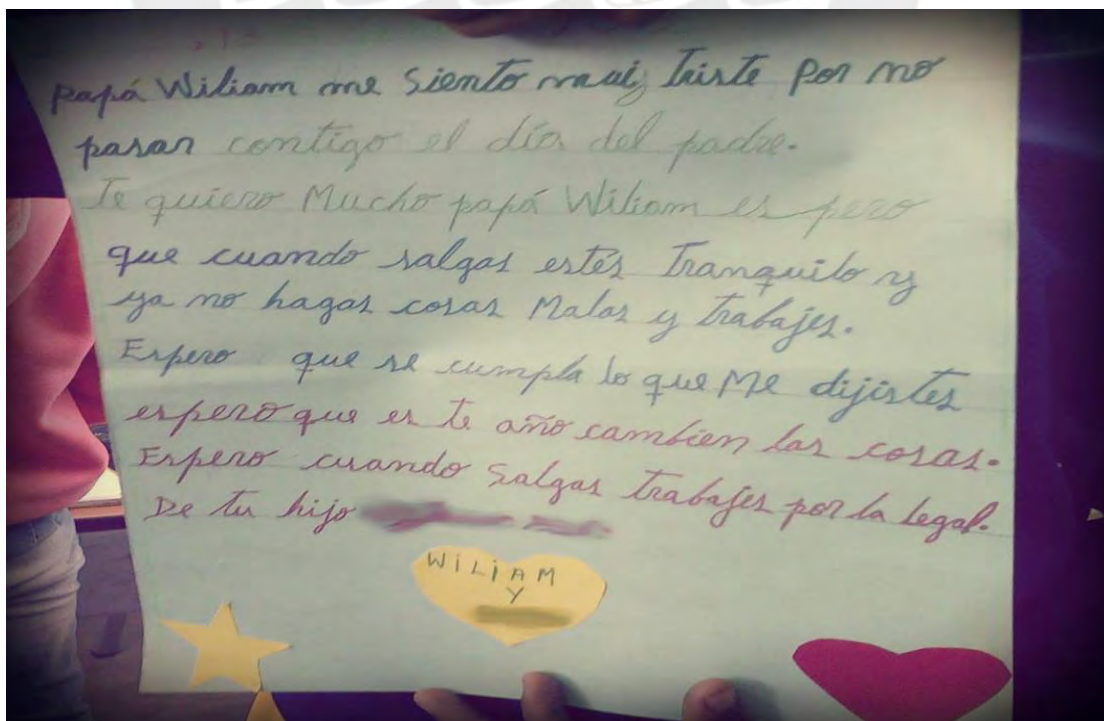 Papá Wiliam me siento mui triste Por no
pasar contigo el día del padre.
Te quiero Mucho papá Wiliam es pero
que cuando salgas estés Tranquilo y
ya no hagas cosas Malas y trabajes.
Espero que se cumpla lo que Me dijistes
espero que es te año cambien las cosas.
Espero cuando Salgas trabajes por la Legal.
De tu hijo
WILIAM
Y